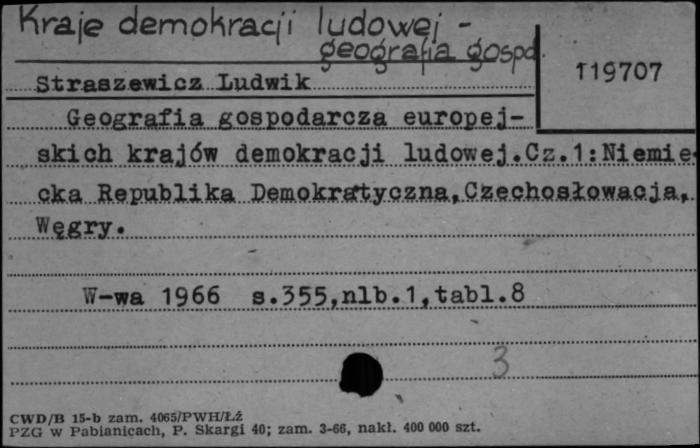 Kraje demokracji ludowej -
geografia gospod
119707
Straszewicz Ludwik
Geografia gospodarcza europej-
skich krajów demokracji ludowej.Cz.1:Niemie
cka Republika Demokratyczna,Czechosłowacja,
Węgry.
W-wa 1966 s.355,nlb.1,tabl.8
3
CWD/B 15-b zam. 4065/PWH/Łź
PZG w Pabianicach, P. Skargi 40; zam. 3-66, nakł. 400 000 szt.